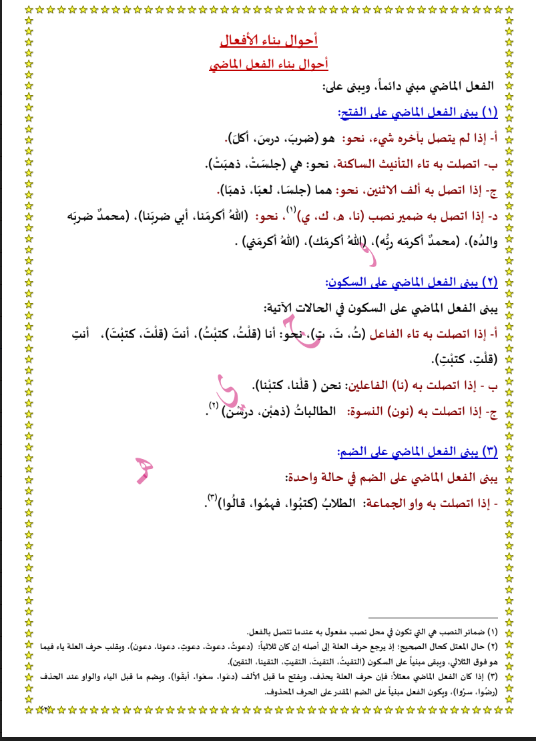 أحوال بناء الأفعال
أحوال بناء الفعل الماضي
الفعل الماضي مبني دائماً، ويبنى على:
(١) يبنى الفعل الماضي على الفتح:
أ- إذا لم يتصل بآخره شيء، نحو: هو (ضربَ، درسَ، أكلَ).
ب- اتصلت به تاء التأنيث الساكنة، نحو: هي (جلسَتْ، ذهبَتْ).
ج- إذا اتصل به ألف الاثنين، نحو: هما (جلسَا، لعبَا، ذهبَا).
د- إذا اتصل به ضمير نصب (نا، هـ، ك، ي)(١)، نحو: (اللهُ أكرمَنا، أبي ضربَنا)، (محمدٌ ضربَه
والدُه)، (محمدٌ أكرمَه ربُّه)، (اللهُ أكرمَك)، (اللهُ أكرمَني) .
(٢) يبنى الفعل الماضي على السكون:
يبنى الفعل الماضي على السكون في الحالات الآتية:
أ- إذا اتصلت به تاء الفاعل (تُ، تَ، تِ)، نحو: أنا (قلْتُ، كتبْتُ)، أنتَ (قلْتَ، كتبْتَ)، أنتِ
(قلْتِ، كتبْتِ).
ب - إذا اتصلت به (نا) الفاعلين: نحن ( قلْنا، كتبْنا).
ج- إذا اتصلت به (نون) النسوة: الطالباتُ (ذهبْن، درسْن) (٢).
(٣) يبنى الفعل الماضي على الضم:
يبنى الفعل الماضي على الضم في حالة واحدة:
- إذا اتصلت به واو الجماعة: الطلابُ (كتبُوا، فهمُوا، قالُوا)(٣).
(١) ضمائر النصب هي التي تكون في محل نصب مفعول به عندما تتصل بالفعل.
(٢) حال المعتل كحال الصحيح: إذ يرجع حرف العلة إلى أصله إن كان ثلاثياً: (دعوتُ، دعوتَ، دعوتِ، دعونا، دعون)، ويقلب حرف العلة ياء فيما
هو فوق الثلاثي، ويبقى مبنياً على السكون (التقيتُ، التقيتَ، التقيتِ، التقينا، التقين).
(٣) إذا كان الفعل الماضي معتلاً: فإن حرف العلة يحذف، ويفتح ما قبل الألف (دعَوا، سعَوا، أبقَوا)، ويضم ما قبل الياء والواو عند الحذف
(رضُوا، سرُوا)، ويكون الفعل مبنياً على الضم المقدر على الحرف المحذوف.